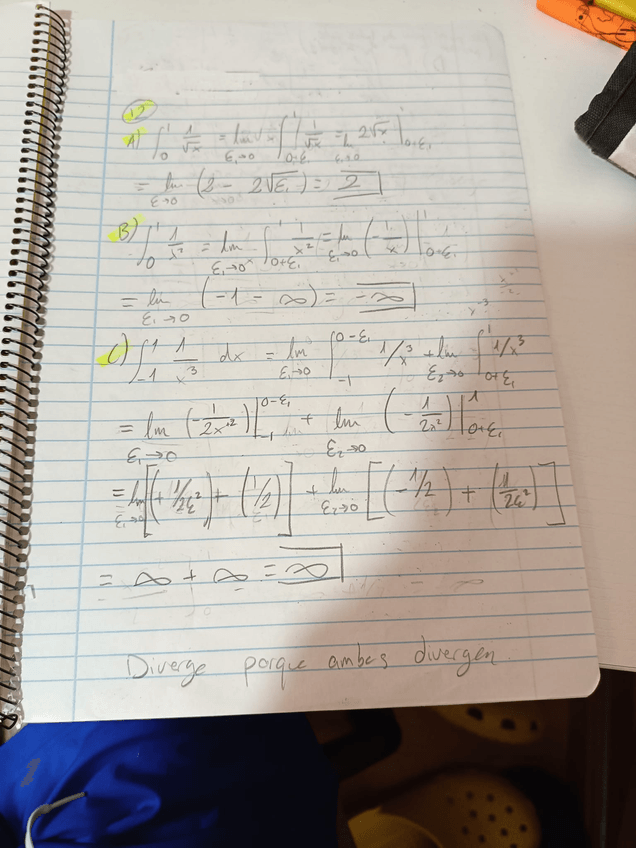 12
A) ∫₀¹ 1/√x = lim ε₁→0 ∫₀₊ε₁¹ 1/√x = L ε₁→0 2√x |₀₊ε₁¹
= lim ε→0 (2 - 2√ε₁) = 2
B) ∫₀¹ 1/x² = lim ε₁→0⁺ ∫₀₊ε₁¹ 1/x² = lim ε₁→0 (-1/x) |₀₊ε₁¹
= lim ε₁→0 (-1 - ∞) = -∞
C) ∫₋₁¹ 1/x³ dx = lim ε₁→0 ∫₋₁⁰⁻ε₁ 1/x³ + lim ε₂→0 ∫₀₊ε₁¹ 1/x³
= lim ε₁→0 (-1/2x²) |₋₁⁰⁻ε₁ + lim ε₂→0 (-1/2x²) |₀₊ε₁¹
= lim ε₁→0 [(+1/2ε²) + (1/2)] + lim ε₂→0 [(-1/2) + (1/2ε²)]
= ∞ + ∞ = ∞
Diverge porque ambas divergen